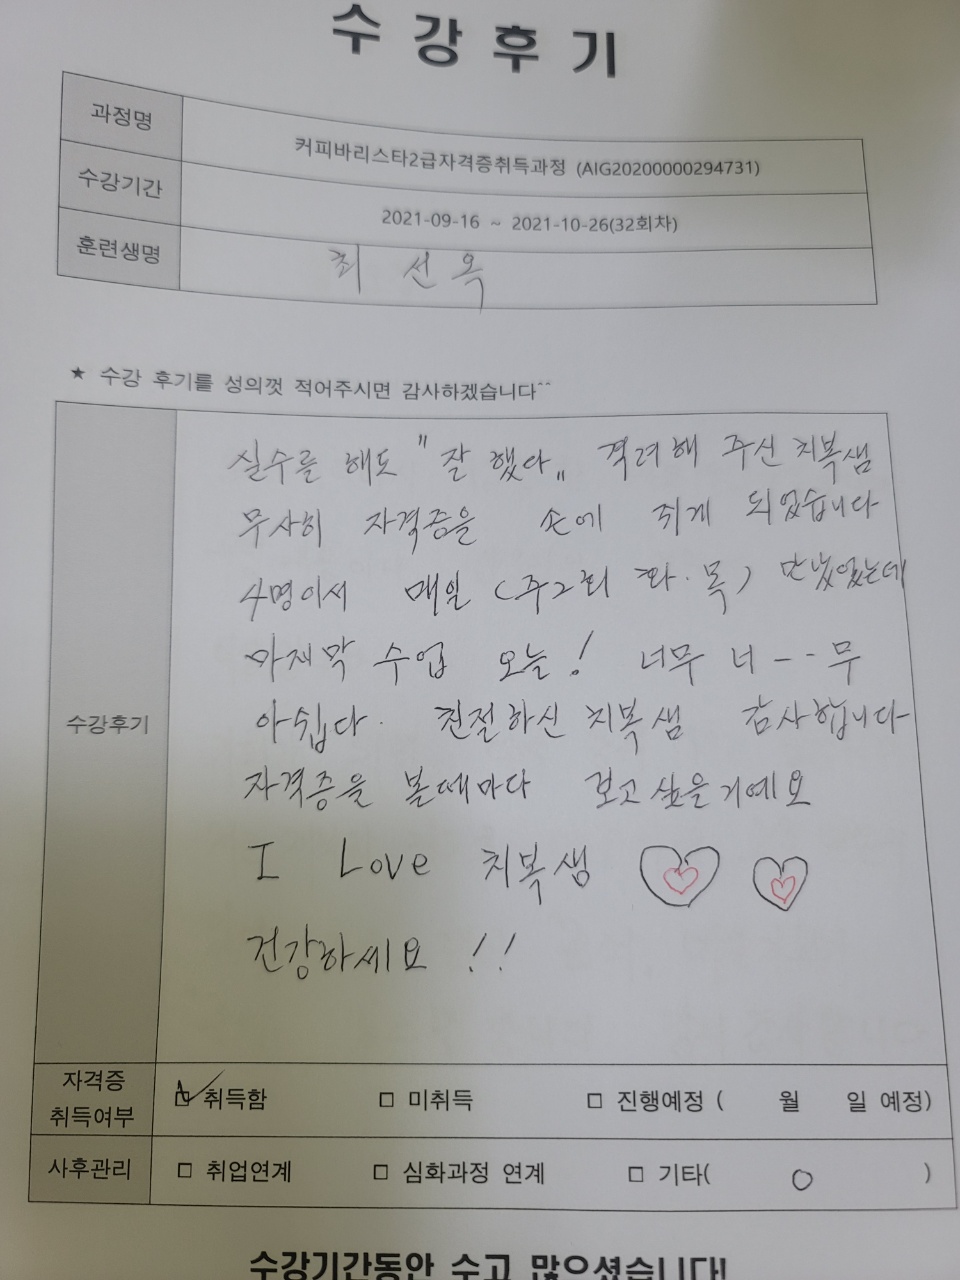 수강후기
과정명
커피바리스타2급자격증취득과정 (AIG20200000294731)
수강기간
2021-09-16 ~ 2021-10-26(32회차)
훈련생명
최 선 옥
★ 수강 후기를 성의껏 적어주시면 감사하겠습니다^^
수강후기
실수를 해도 "잘 했다" 격려해 주신 치복샘
무사히 자격증을 손에 쥐게 되었습니다
4명이서 매일 (주2회 화·목) 만났었는데
마지막 수업 오늘! 너무 너--무
아쉽다. 친절하신 치복샘 감사합니다
자격증을 볼때마다 보고싶을거예요
I Love 치복샘
건강하세요 !!
자격증 취득여부
☑ 취득함 □ 미취득 □ 진행예정 ( 월 일 예정)
사후관리
□ 취업연계 □ 심화과정 연계 □ 기타( ○ )
수강기간동안 수고 많으셨습니다!